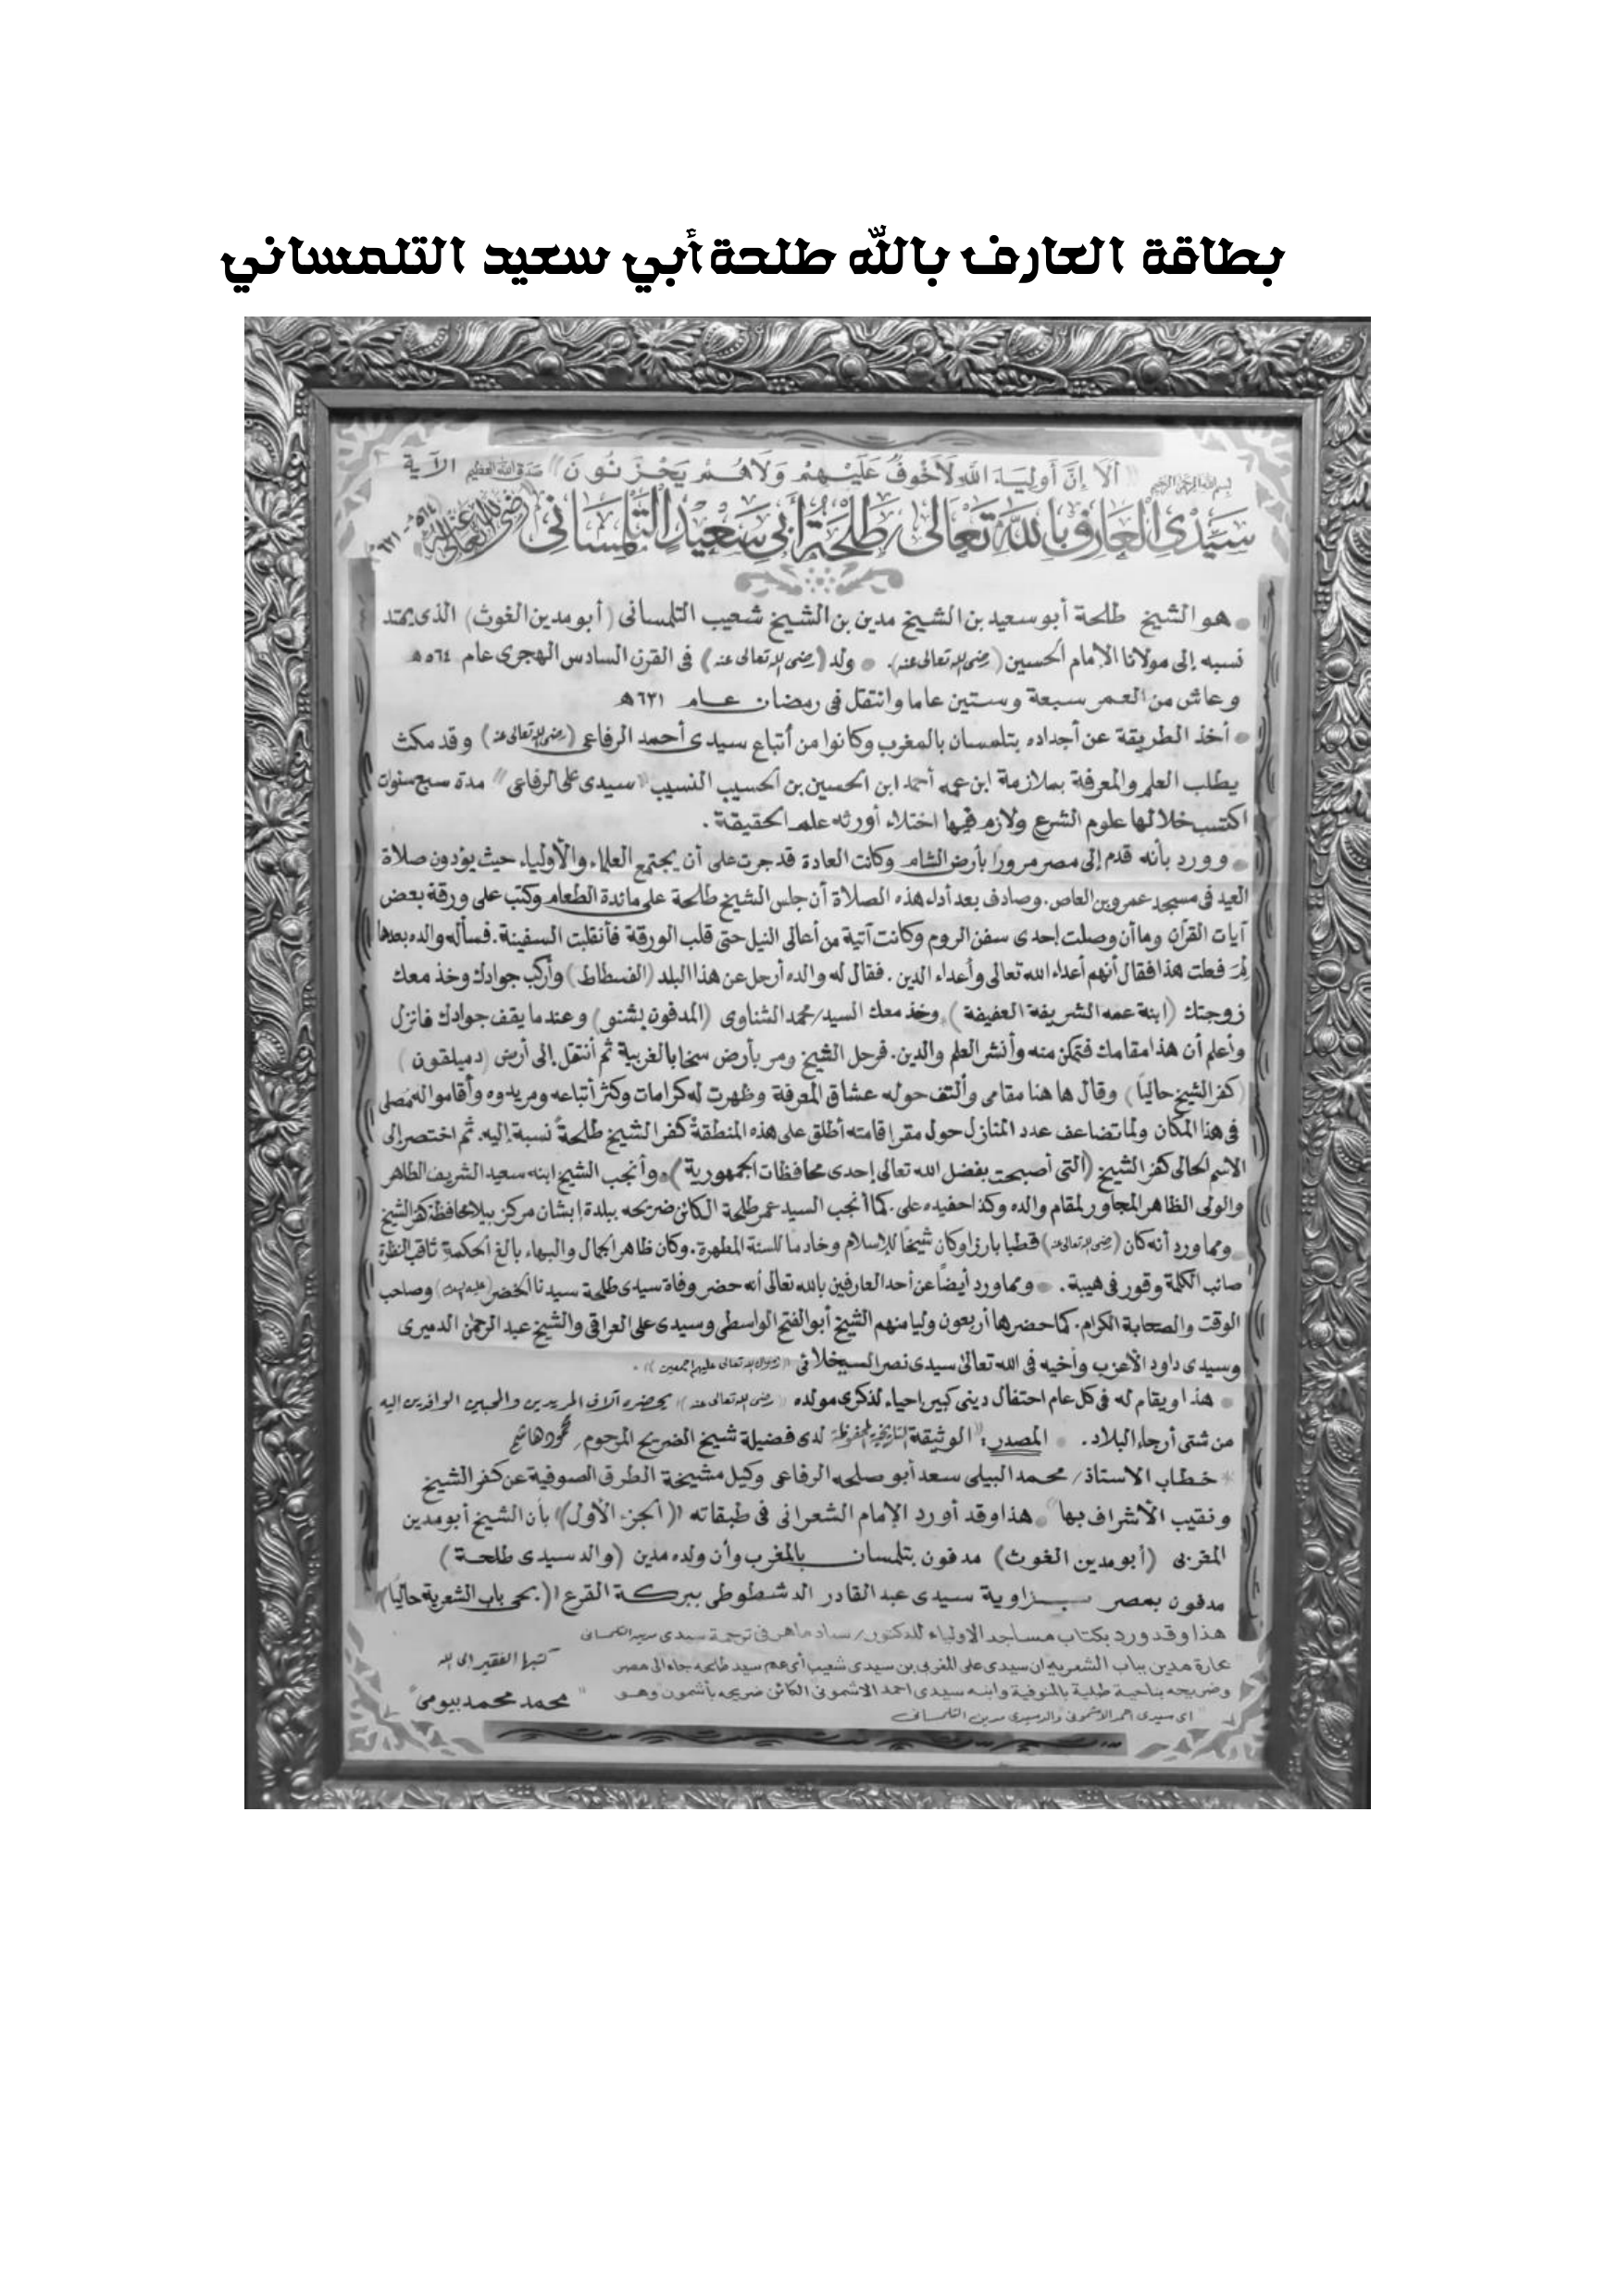 بطاقة العارف بالله طلحة أبي سعيد التلمساني
بسم الله الرحمن الرحيم "أَلَا إِنَّ أَوْلِيَاءَ اللَّهِ لَا خَوْفٌ عَلَيْهِمْ وَلَا هُمْ يَحْزَنُونَ" صدق الله العظيم الآية
سيدى العارف بالله تعالى / طلحة أبى سعيد التلمسانى رضى الله تعالى عنه ٥٦٤هـ - ٦٣١هـ
هو الشيخ طلحة أبو سعيد بن الشيخ مدين بن الشيخ شعيب التلمسانى (أبو مدين الغوث) الذى يمتد
نسبه إلى مولانا الإمام الحسين (رضى الله تعالى عنه). ولد (رضى الله تعالى عنه) فى القرن السادس الهجرى عام ٥٦٤هـ
وعاش من العمر سبعة وستين عاما وانتقل فى رمضان عام ٦٣١هـ
أخذ الطريقة عن أجداده بتلمسان بالمغرب وكانوا من أتباع سيدى أحمد الرفاعى (رضى الله تعالى عنه) وقد مكث
يطلب العلم والمعرفة بملازمة ابن عمه أحمد ابن الحسين بن الحسيب النسيب "سيدى على الرفاعى" مدة سبع سنوات
اكتسب خلالها علوم الشرع ولازم فيها اختلاء أورثه علم الحقيقة.
وورد بأنه قدم إلى مصر مرورا بأرض الشام وكانت العادة قد جرت على أن يجتمع العلماء والأولياء حيث يؤدون صلاة
العيد فى مسجد عمرو بن العاص. وصادف بعد أداء هذه الصلاة أن جلس الشيخ طلحة على مائدة الطعام وكتب على ورقة بعض
آيات القرآن وما أن وصلت إحدى سفن الروم وكانت آتية من أعالى النيل حتى قلب الورقة فأنقلبت السفينة. فسأله والده بعدها
لم فعلت هذا فقال أنهم أعداء الله تعالى وأعداء الدين. فقال له والده أرحل عن هذا البلد (الفسطاط) وأركب جوادك وخذ معك
زوجتك (ابنة عمه الشريفة العفيفة)، وخذ معك السيد/ محمد الشناوى (المدفون بشنو) وعندما يقف جوادك فانزل
وأعلم أن هذا مقامك فتمكن منه وأنشر العلم والدين. فرحل الشيخ ومر بأرض سخا بالغربية ثم أنتقل إلى أرض (دميلقون)
(كفر الشيخ حالياً) وقال ها هنا مقامى وألتف حوله عشاق المعرفة وظهرت له كرامات وكثر أتباعه ومريدوه وأقاموا له مصلى
فى هذا المكان ولما تضاعف عدد المنازل حول مقر إقامته أطلق على هذه المنطقة كفر الشيخ طلحة نسبة إليه. ثم اختصر إلى
الاسم الحالى كفر الشيخ (التى أصبحت بفضل الله تعالى إحدى محافظات الجمهورية). وأنجب الشيخ ابنه سعيد الشريف الطاهر
والولى الظاهر المجاور لمقام والده وكذا حفيده على. كما أنجب السيد عمر طلحة الكائن ضريحه ببلدة إبشان مركز بيلا محافظة كفر الشيخ
ومما ورد أنه كان (رضى الله تعالى عنه) قطبا بارزا وكان شيخاً للإسلام وخادما للسنة المطهرة. وكان ظاهر الجمال والبهاء بالغ الحكمة ثاقب النظرة
صائب الكلمة وقور فى هيبة. ومما ورد أيضاً عن أحد العارفين بالله تعالى أنه حضر وفاة سيدى طلحة سيدنا الخضر (عليه السلام) وصاحب
الوقت والصحابة الكرام. كما حضرها أربعون وليا منهم الشيخ أبو الفتح الواسطى وسيدى على العراقى والشيخ عبد الرحمن الدميرى
وسيدى داود الأعزب وأخيه فى الله تعالى سيدى نصر السيخلائى (رضوان الله تعالى عليهم أجمعين).
هذا ويقام له فى كل عام احتفال دينى كبير احياء لذكرى مولده (رضى الله تعالى عنه) يحضره آلاف المريدين والمحبين الوافدين اليه
من شتى أرجاء البلاد. المصدر: "الوثيقة التاريخية المحفوظة لدى فضيلة شيخ الضريح المرحوم/ محمود هاشم
* خطاب الاستاذ/ محمد البيلى سعد أبو صلحه الرفاعى وكيل مشيخة الطرق الصوفية عن كفر الشيخ
ونقيب الأشراف بها" هذا وقد أورد الإمام الشعرانى فى طبقاته (الجزء الأول) بأن الشيخ أبو مدين
المغربى (أبو مدين الغوث) مدفون بتلمسان بالمغرب وأن ولده مدين (والد سيدى طلحة)
مدفون بمصر بزاوية سيدى عبد القادر الدشطوطى ببركة القرع (بحى باب الشعرية حالياً)
هذا وقد ورد بكتاب مساجد الاولياء للدكتور/ سعاد ماهر فى ترجمة سيدى مدين التلمسانى
بحارة مدين بباب الشعريه ان سيدى على المغربى بن سيدى شعيب أى عم سيد طلحه جاء الى مصر
وضريحه بناحية طلية بالمنوفية وابنه سيدى احمد الاشمونى الكائن ضريحه بأشمون وهو
اى سيدى احمد الاشمونى والد سيدى مدين التلمسانى
كتبها الفقير الى الله
محمد محمد بيومى